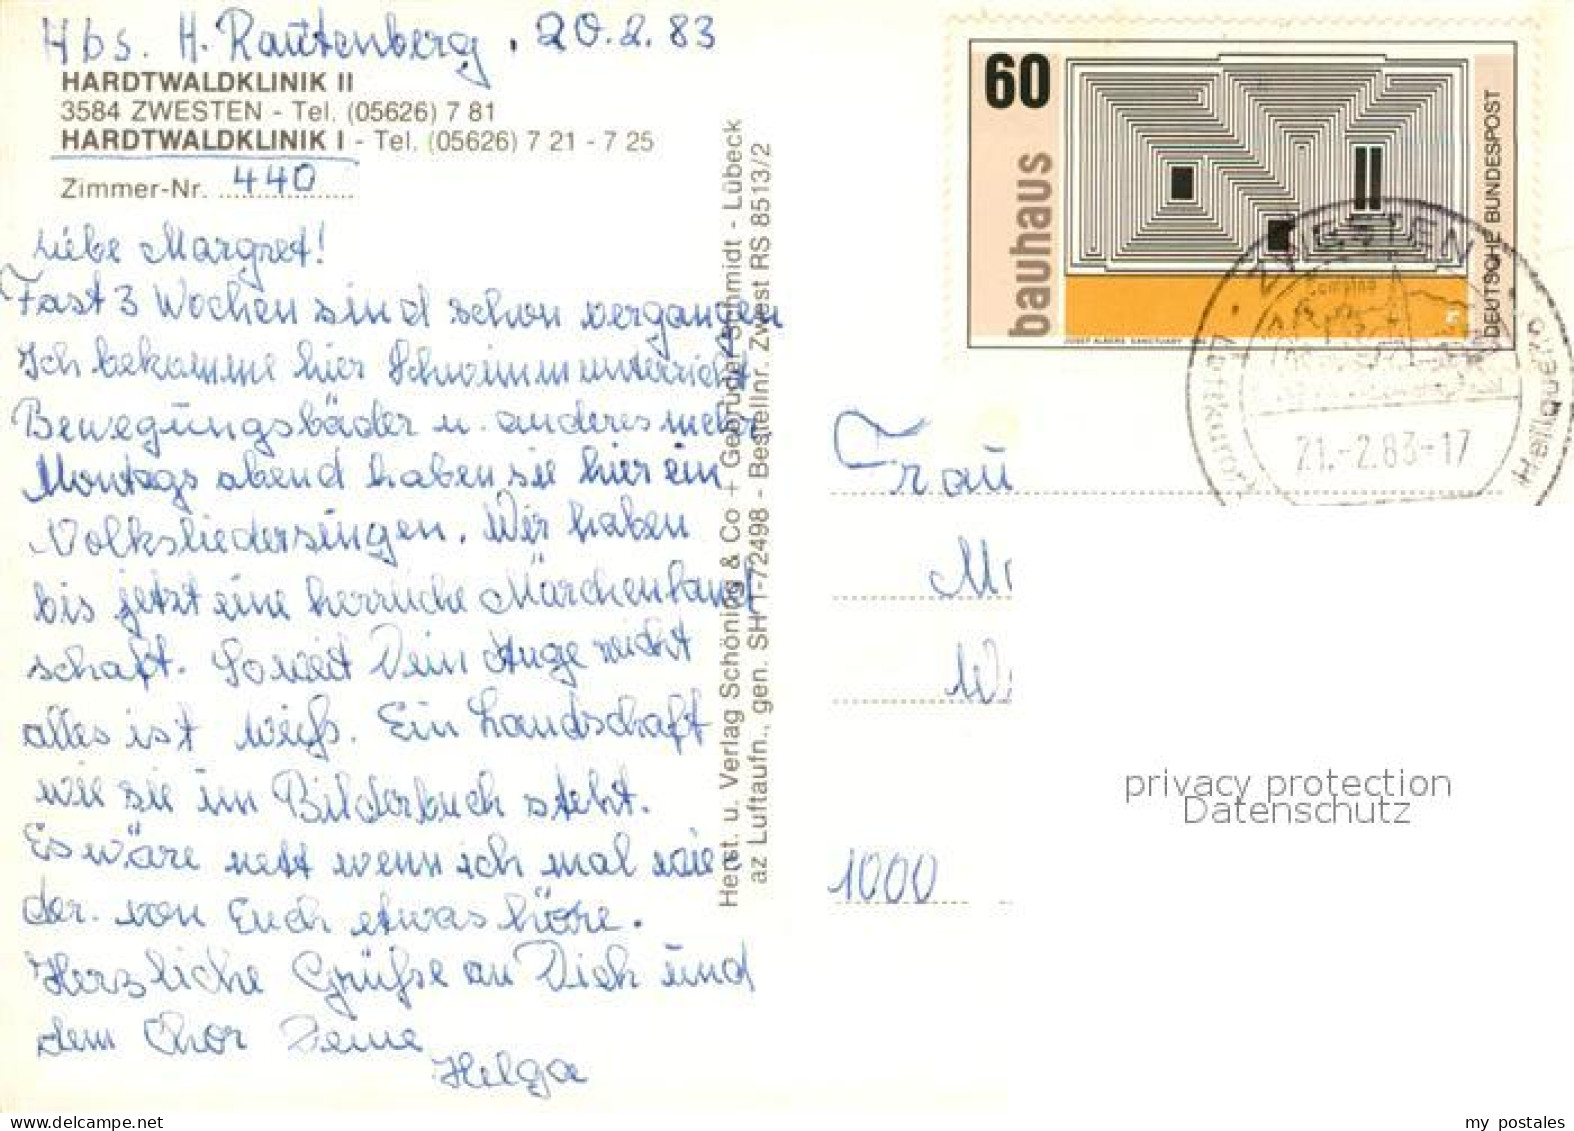 Abs. H. Rautenberg, 20.2.83
HARDTWALDKLINIK II
3584 ZWESTEN - Tel. (05626) 7 81
HARDTWALDKLINIK I - Tel. (05626) 7 21 - 7 25
Zimmer-Nr. 440
Liebe Margret!
Fast 3 Wochen sind schon vergangen
Ich bekomme hier Schwimmunterricht
Bewegungsbäder u. anderes mehr
Montags abend haben sie hier ein
Volksliedersingen. Wir haben
bis jetzt eine herrliche Märchenland
schaft. Soweit Dein Auge reicht
alles ist weiß. Ein Landschaft
wie sie im Bilderbuch steht.
Es wäre nett wenn ich mal wie
der von Euch etwas höre.
Herzliche Grüße an Dich und
dem Chor Deine
Helga
Herst. u. Verlag Schöning & Co + Gebrüder Schmidt - Lübeck
az Luftaufn., gen. SH 1-72498 - Bestellnr. Zwest RS 8513/2
60
bauhaus
DEUTSCHE BUNDESPOST
JOSEF ALBERS SANCTUARY
ZWESTEN
21.-2.83-17
Frau
1000
privacy protection
Datenschutz
my postales